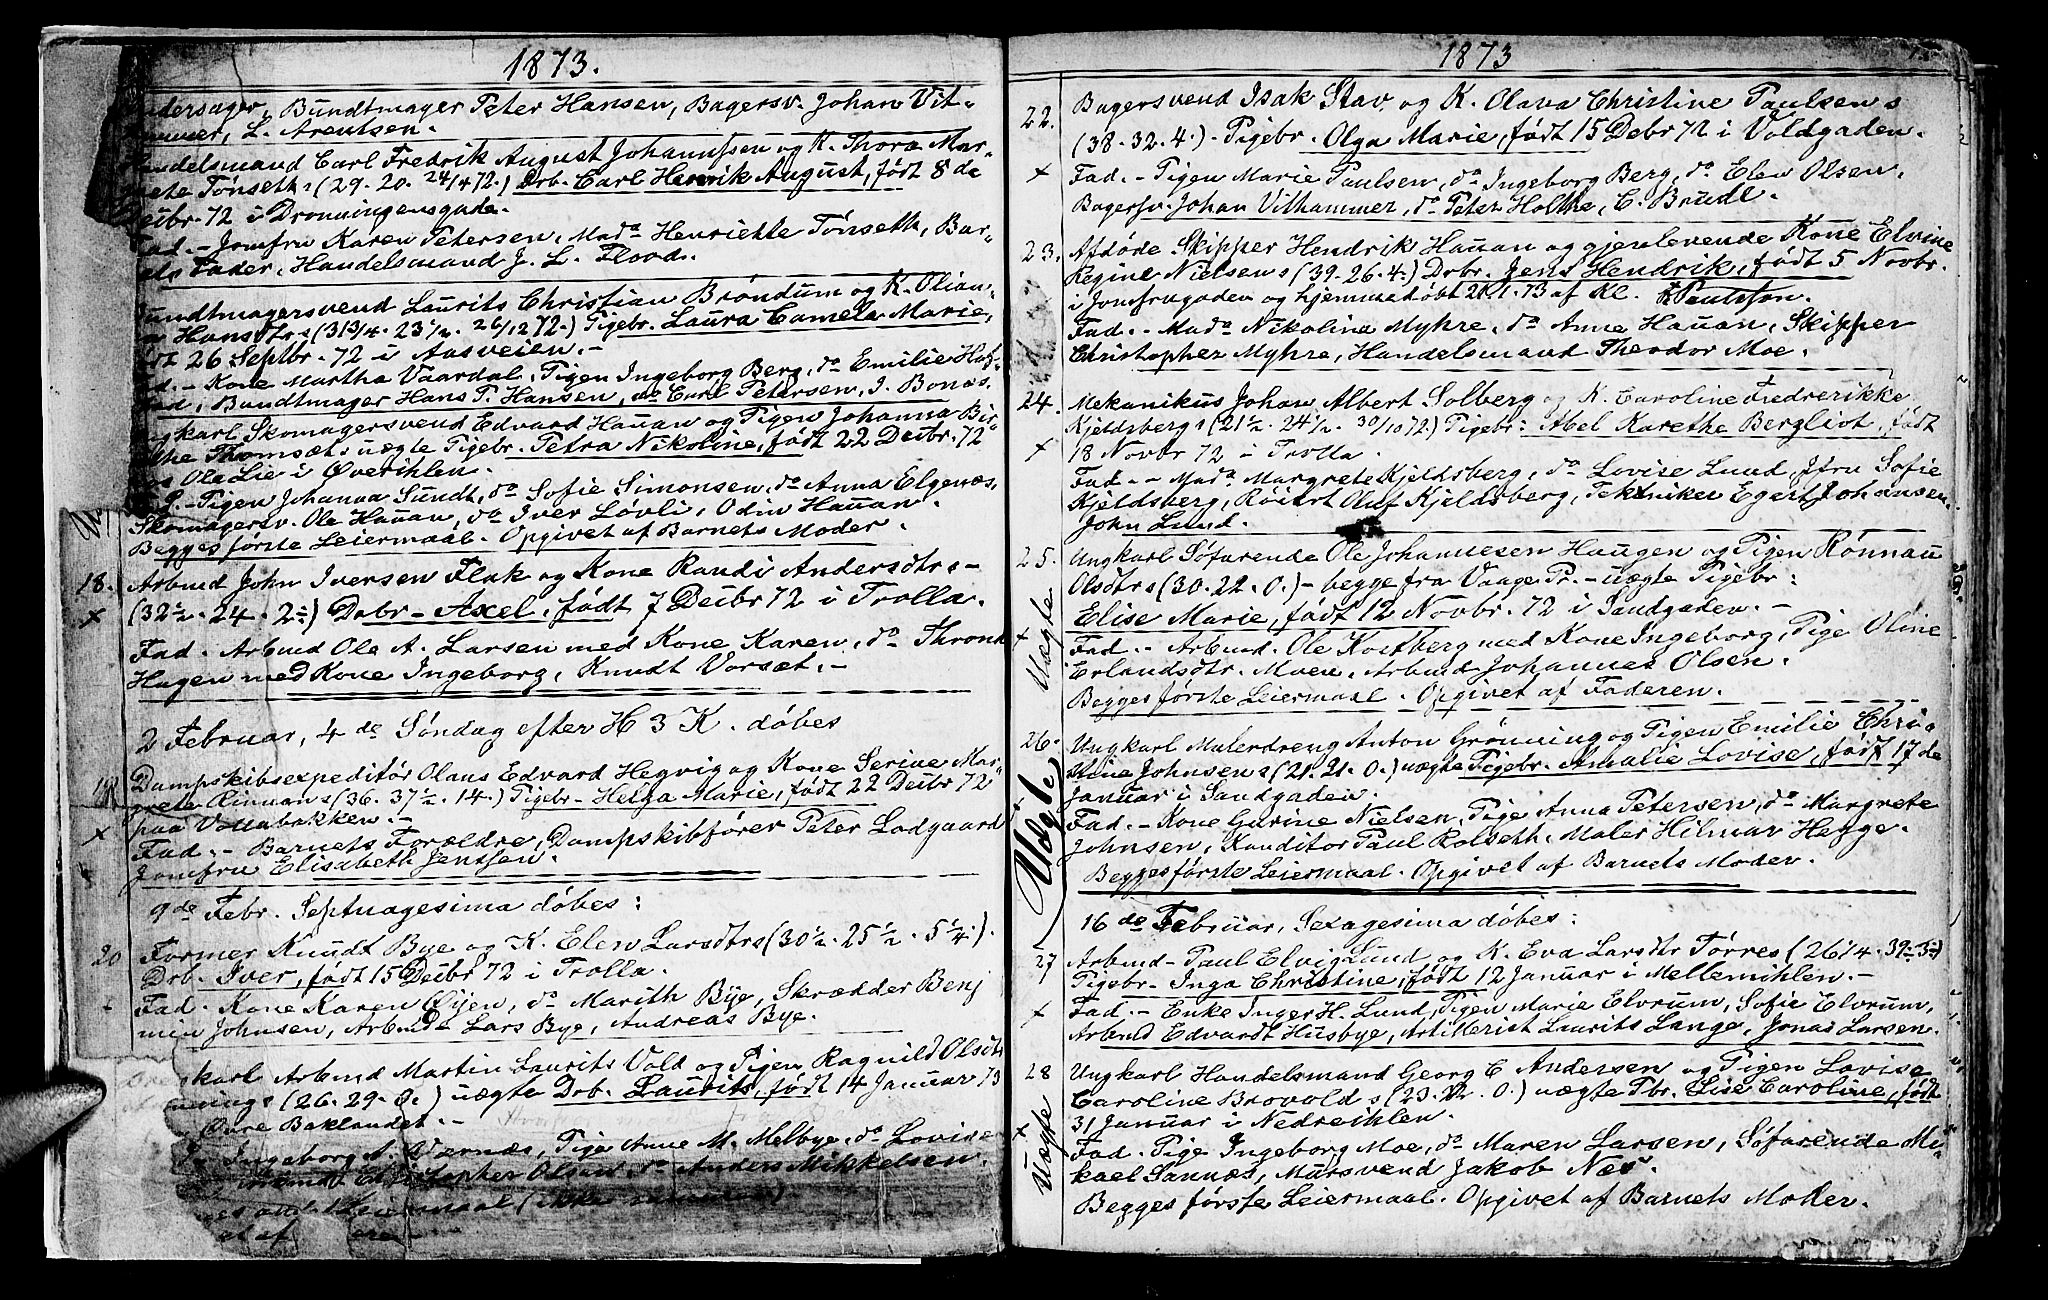 1873.
Bundtmager Peter Hansen, Bagersv. Johan Vit-
L. Arentsen.
Carl Fredrik August Johannssen og K. Thora Mar-
Tönseth s (29. 20. 24/4 72.) Drb. Carl Henrik August, født 8 de
72 i Dronningensgade.
Fad. - Jomfru Karen Petersen, Mada Henriette Tönseth, Bar-
Fader, Handelsmand J. L. Flood.
Laurits Christian Bröndum og K. Olian-
Hansdtr s (31 3/4. 23 1/2. 26/12 72.) Pigebr. Laura Camela Marie,
26 Septbr. 72 i Aasveien. -
Fad. - Kone Martha Vaardal, Pigen Ingeborg Berg, do Emilie
Bundtmager Hans P. Hansen, do Carl Petersen, J. Bonæs.
Skomagersvend Edvard Hauan og Pigen Johanna Bir-
uægte Pigebr. Petra Nikoline, født 22 Decbr. 72
Ole Lie i Øverihlen.
Pigen Johanna Sundt, do Sofie Simonsen, do Anna Elgenæs,
Skomagersv. Ole Hauan, do Iver Lövli, Odin Hauan.
Begges første Leiermaal. Opgivet af Barnets Moder.
18. Arbmd John Iversen Flak og Kone Randi Andersdtr s -
x (32 1/2. 24. 2 1/2) Drbr - Axel, født 7 Decbr 72 i Trolla.
Fad. - Arbmd Ole A. Larsen med Kone Karen, do Thrond
Hagen med Kone Ingeborg, Knudt Vorset. -
2 Februar, 4 de Søndag efter H 3 K. døbes
19 Dampskibsexpeditör Olaus Edvard Hegvig og Kone Serine Mar-
grete Rinnan s (36. 37 1/2. 14.) Pigebr - Helga Marie, født 22 Decbr 72
x paa Vollabakken. -
Fad. - Barnets Forældre, Dampskibfører Peter Lodgaard
Jomfru Elisabeth Jenssen.
9de Febr. Septuagesima døbes:
20 Former Knudt Bye og K. Elen Larsdtr s (30 1/2. 25 1/2. 5 1/4).
Drb. Iver, født 15 Decbr 72 i Trolla.
Fad. Kone Karen Øyen, do Marith Bye, Skrædder Benj
min Johnsen, Arbmd Lars Bye, Andreas Bye.
Arbmd Martin Laurits Vold og Pigen Ragnild Olsdtr
(26. 29. 0.) uægte Drb. Laurits, født 14 Januar 73
Øvre Baklandet. -
Ingeborg A. Vernæs, Pige Anne M. Melbye, do Lovise
Christopher Olsen, do Anders Mikkelsen.
Leiermaal (ikke
af
1873
22. Bagersvend Isak Stav, og K. Olava Christine Paulsen s
(38. 32. 4.) - Pigebr. Olga Marie, født 15 Debr 72 i Voldgaden.
x Fad. - Pigen Marie Paulsen, do Ingeborg Berg, do Elen Olsen,
Bagersv. Johan Vithammer, do Peter Holthe, C. Brudl.
23. Afdøde Skipper Hendrik Hauan og gjenlevende Kone Elvine
Regine Nielsen s (39. 26. 4.) Drbr. Jens Hendrik, født 5 Novbr.
i Jomfrugaden og hjemmedøbt 21.1.73 af Kl. Paulsson.
Fad. - Mada Nikoline Myhre, do Anne Hauan, Skipper
Christopher Myhre, Handelsmand Theodor Moe.
24. Mekanikus Johan Albert Solberg og K. Caroline Fredrerikke
Kjeldsberg s (21 1/2. 24 1/2. 30/10 72.) Pigebr: Abel Karethe Bergliot, født
x 18 Novbr 72 i Trolla.
Fad. - Mada Margrete Kjeldsberg, do Lovise Lund, Jfru Sofie
Kjeldsberg, Röiert Oluf Kjeldsberg, Tekniker Egert Johansen,
John Lund.
25. Ungkarl Søfarende Ole Johannesen Haugen og Pigen Rönnau
Olsdtr s (30. 22. 0.) - begge fra Vaage Pr. - uægte Pigebr:
Uægte
Elise Marie, født 12 Novbr. 72 i Sandgaden. -
x Fad. - Arbmd. Ole Kostberg med Kone Ingeborg, Pige Oline
Erlandsdtr. Moen, Arbmd Johannes Olsen.
Begges første Leiermaal. Opgivet af Faderen.
26. Ungkarl Malerdreng Anton Grönning og Pigen Emilie Chri-
stine Johnsen s (21. 21. 0.) uægte Pigebr. Amalie Lovise, født 17 de
Uægte
Januar i Sandgaden.
Fad. - Kone Gurine Nielsen, Pige Anna Petersen, do Margrete
Johnsen, Konditor Paul Rolseth, Maler Hilmar Hegge.
Begges første Leiermaal. Opgivet af Barnets Moder.
16 de Februar, Sexagesima døbes:
27 Arbmd - Paul Elvig Lund og K. Eva Larsdtr Törres (26 1/4. 39 1/2. 3 1/2)
Pigebr - Inga Christine, født 12 Januar i Mellemihlen. -
x Fad. - Enke Inger H. Lund, Pigen Marie Elvrum, Sofie Elvrum,
Arbmd Edvardt Husbye, Artillerist Laurits Lange, Jonas Larsen.
28 Ungkarl Handelsmand Georg C Andersen og Pigen Lovise
Caroline Brovold s (23. 22. 0.) uægte Pbr. Lise Caroline, født
Uægte
31 Januar i Nedreihlen.
x Fad. Pige Ingeborg Moe, do Maren Larsen, Søfarende Mi-
kael Sannæs, Mursvend Jakob Næs.
Begges første Leiermaal. Opgivet af Barnets Moder.